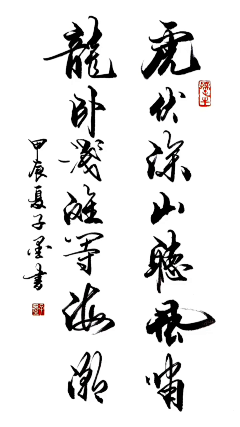 虎伏深山聽風嘯
龍卧淺灘等海潮
甲辰夏子墨書